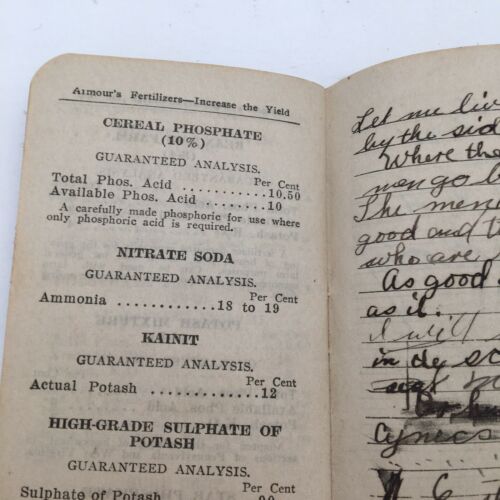 Armour's Fertilizers—Increase the Yield
CEREAL PHOSPHATE
(10%)
GUARANTEED ANALYSIS.
Per Cent
Total Phos. Acid ..........10.50
Available Phos. Acid .......10
A carefully made phosphoric for use where
only phosphoric acid is required.
NITRATE SODA
GUARANTEED ANALYSIS.
Per Cent
Ammonia ............18 to 19
KAINIT
GUARANTEED ANALYSIS.
Per Cent
Actual Potash ............12
HIGH-GRADE SULPHATE OF
POTASH
GUARANTEED ANALYSIS.
Per Cent
Sulphate of Potash
Let me liv
by the sid
Where the
men go b
The men
good and
who are
As good
as i.
I will
in de sc
Cynics
6